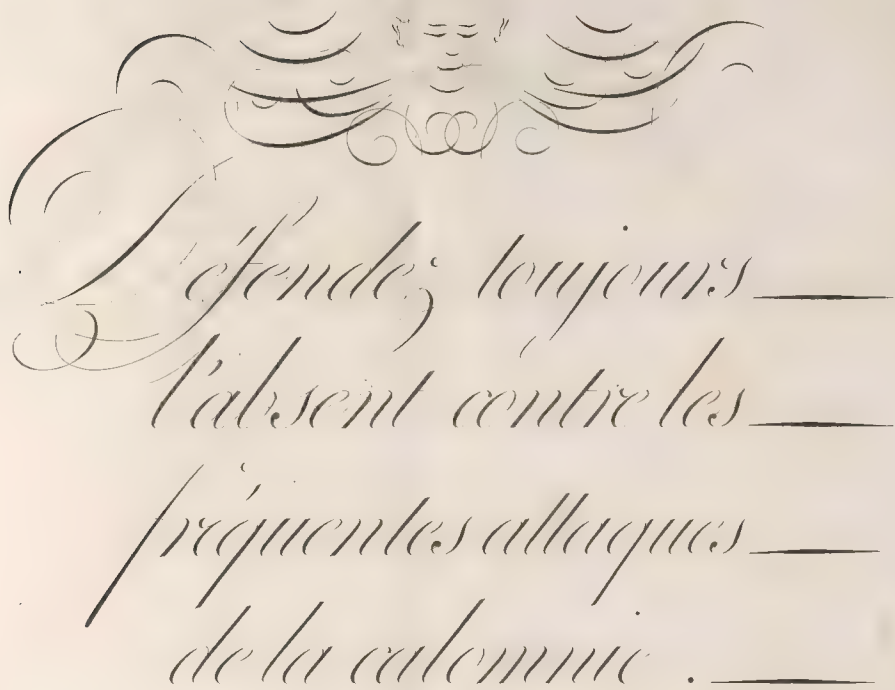 Défendez toujours
l'absent contre les
fréquentes attaques
de la calomnie.